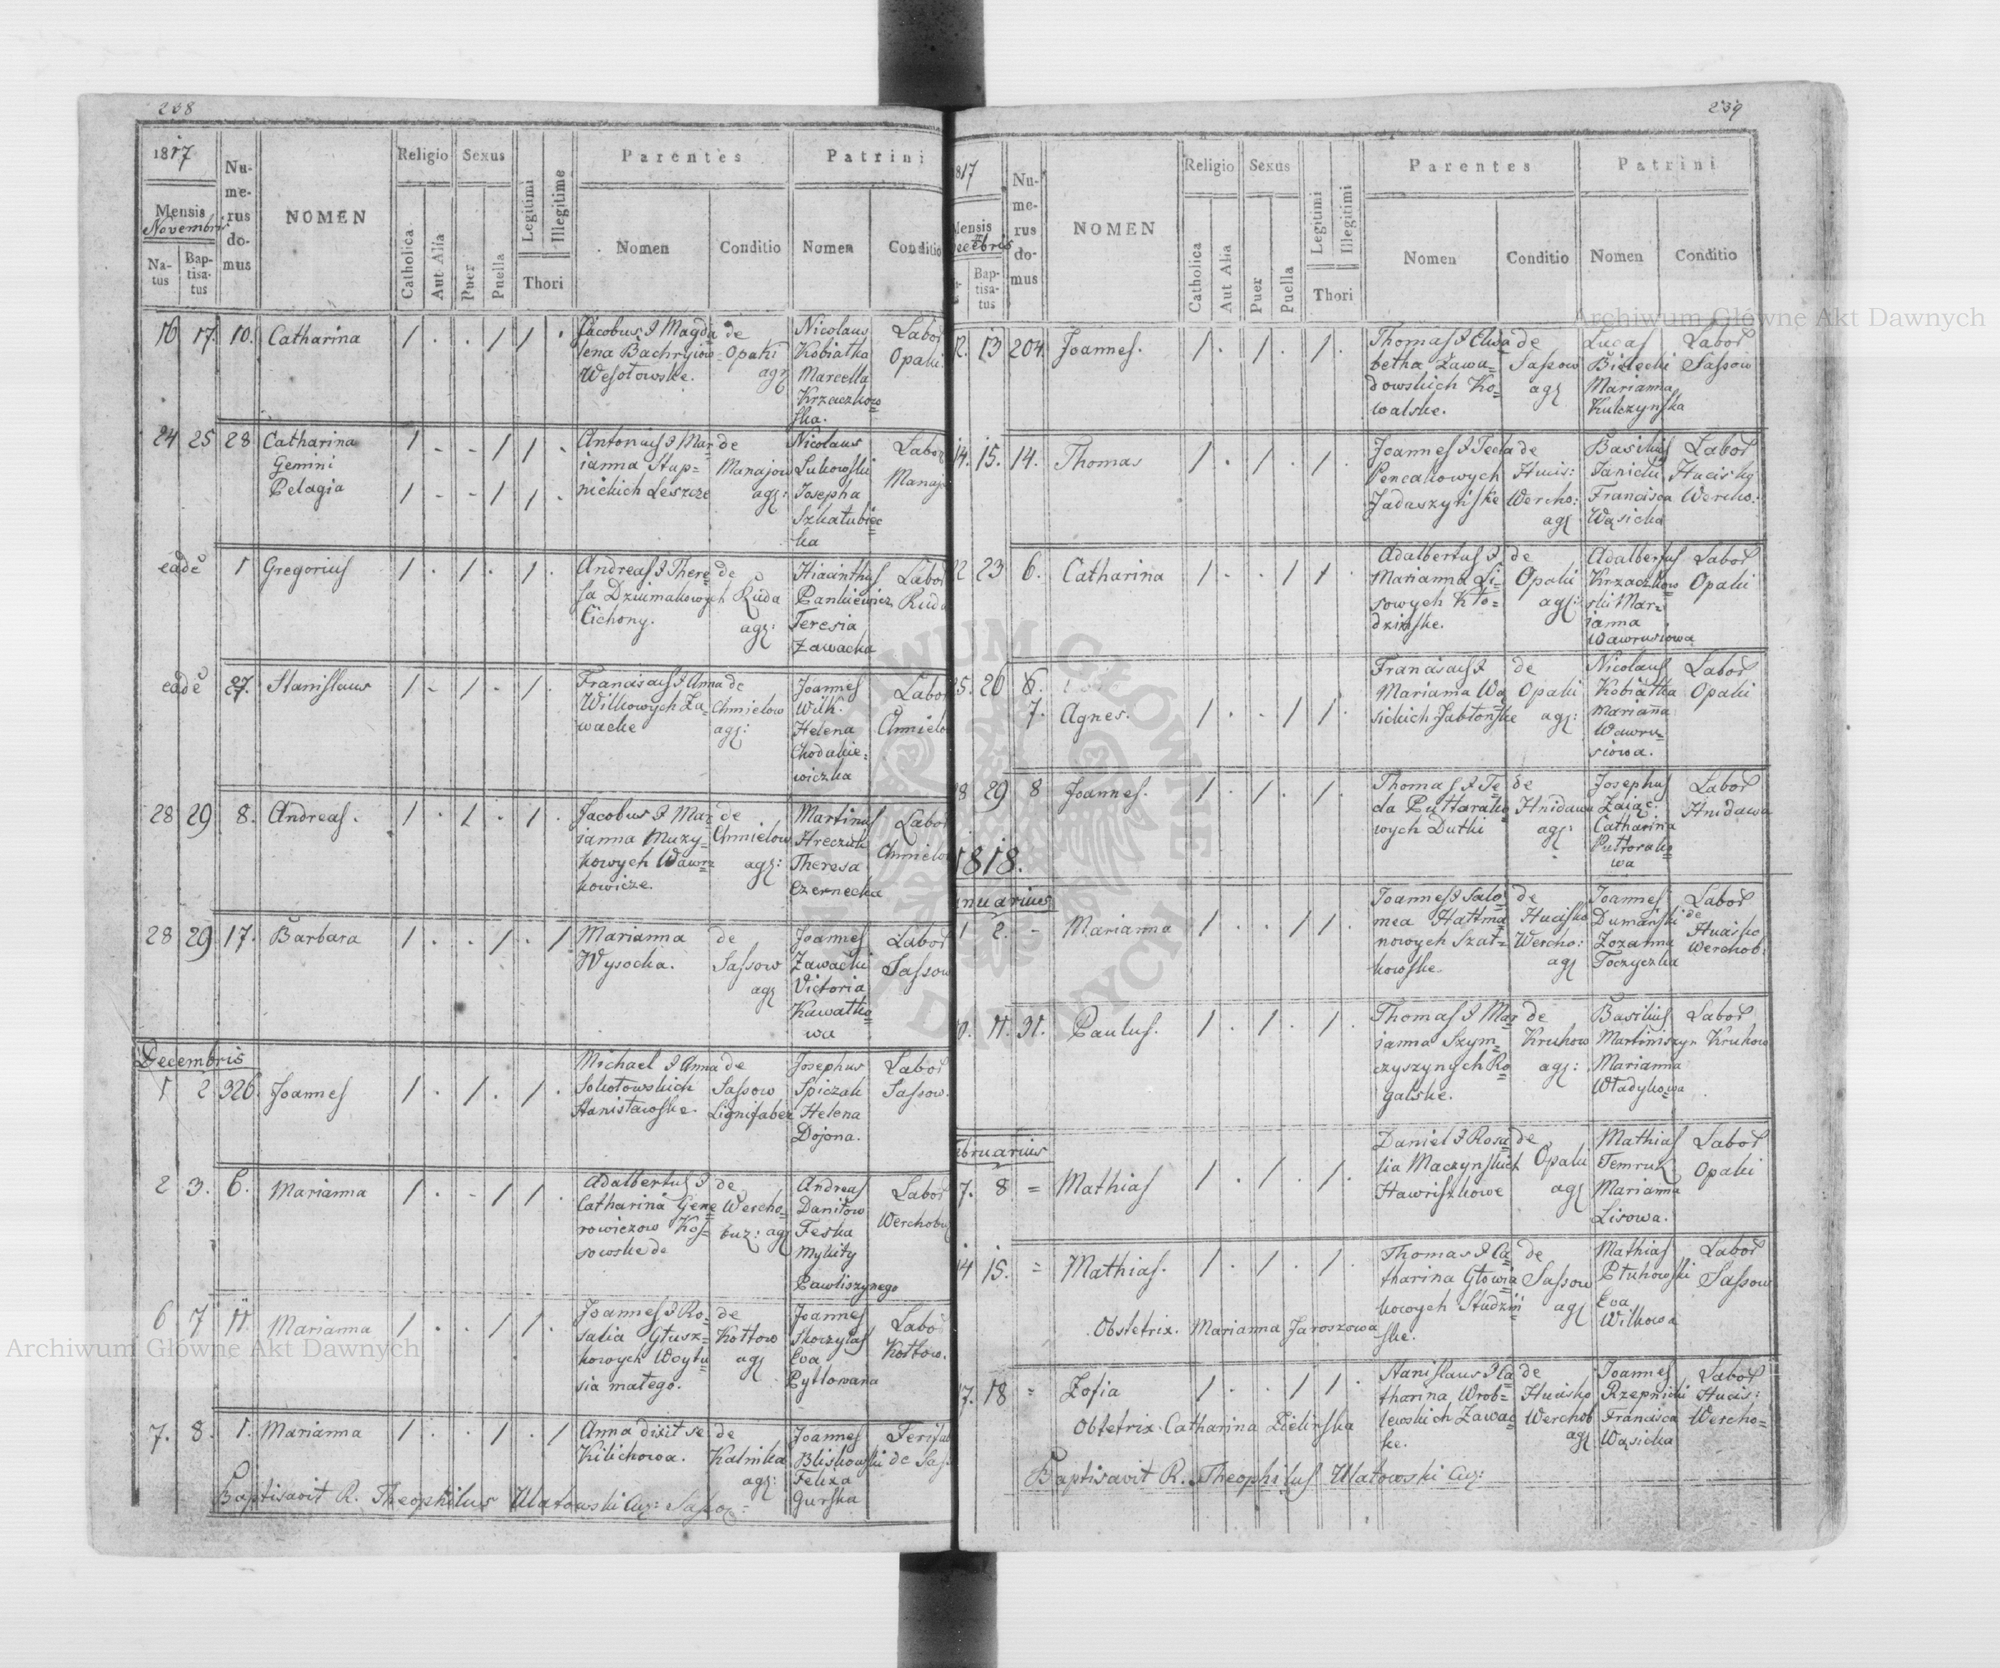 238
1817
Mensis
Novembris
Natus
Baptisatus
Numerus domus
NOMEN
Religio
Catholica
Aut Alia
Sexus
Puer
Puella
Legitimi
Illegitime
Thori
Parentes
Nomen
Conditio
Patrini
Nomen
Conditio
16 17. 10. Catharina
Jacobus & Magda
lena Bachryiow
Wesołowske.
de
Opaki
agr
Nicolaus
Kobiałka
Marcella
Krzaczkow
ska.
Labor
Opaki.
24 25 28 Catharina
Gemini
Pelagia
Antonius & Mar
ianna Stup-
nickich Leszcze
de
Manajow
agr:
Nicolaus
Lukowski
Josepha
Szkatubiec
ka
Labor
Manaj
eadē 1 Gregorius
Andreas & There
sa Dziumakowych
Cichony.
de
Ruda
agr:
Hiacinthus
Pankiewicz
Teresia
Zawacka
Labor
Ruda
eadē 27. Stanislaus
Franciscus & Anna
Wilkowych Za-
wacke
de
Chmielow
agr:
Joannes
Wilk.
Helena
Chodakie-
wiczka
Labor
Chmielo
28 29 8. Andreas.
Jacobus & Mar
ianna Muzy-
kowych Wawrz
kowicze.
de
Chmielow
agr:
Martinus
Hreczuk
Theresa
Czernecka
Labor
Chmielow
28 29 17. Barbara
Marianna
Wysocka.
de
Sassow
agr
Joannes
Zawacki
Victoria
Kawałko
wa
Labor
Sassow
Decembris
1 2 326. Joannes
Michael & Anna
Sokołowskich
Stanisławske.
de
Sassow
Lignifaber
Josephus
Spiczak
Helena
Dojona.
Labor
Sassow.
2 3. 6. Marianna
Adalbertus &
Catharina Gene
rowiczow Kos-
sowske de
de
Wercho-
buz: agr
Andreas
Daniłow
Feska
Mykity
Pawliszynego
Labor
Werchobu
6 7 11. Marianna
Joannes & Ro-
salia Głusz-
kowych Woytu
sia małego.
de
Kołtow
agr
Joannes
Skoczylas
Eva
Pytlowana
Labor
Kołtow.
7. 8. 1. Marianna
Anna dixit se
Kilichowa.
de
Kalnika
agr:
Joannes
Bliskowski
Felixa
Gurska
de Sas
Baptisavit R. Theophilus Ulatowski Cuz: Sassov:
239
1817
Mensis
Decēbris
Baptisatus
Numerus domus
NOMEN
Religio
Catholica
Aut Alia
Sexus
Puer
Puella
Legitimi
Illegitimi
Thori
Parentes
Nomen
Conditio
Patrini
Nomen
Conditio
12. 13 204. Joannes.
Thomas & Elisa
betha Zawa-
dowskich Ko-
walske.
de
Sassow
agr
Lucas
Bielecki
Marianna
Kulczynska
Labor
Sassow
14. 15. 14. Thomas
Joannes & Tecla
Pencakowych
Jadaszyńske
de
Hucis:
Wercho:
agr
Basilius
Janicki
Francisca
Wąsicka
Labor
Hucisky
Wercho:
22 23 6. Catharina
Adalbertus &
Marianna Li-
sowych Kło-
dzińske.
de
Opaki
agr:
Adalbertus
Krzaczkow
ski Mar-
ianna
Wawrusiowa
Labor
Opaki
25. 26 6.
7. Agnes.
Franciscus &
Marianna Wą
sickich Jabłonske
de
Opaki
agr:
Nicolaus
Kobiałka
Marianna
Wawru-
siowa.
Labor
Opaki
28 29 8 Joannes.
Thomas & Te-
cla Puttorako
wych Dutki
de
Hnidawa
agr:
Josephus
Zaiąc:
Catharina
Puttorako
wa
Labor
Hnidawa
1818.
Januarius
1 2. - Marianna
Joannes & Salo
mea Hattma
nowych Szat-
kowske.
de
Hucisko
Wercho:
agr
Joannes
Dumański
Zozanna
Toczyczka
Labor
de
Hucisko
Werchob:
10. 11. 31. Paulus.
Thomas & Mar
ianna Szym-
czyszynych Ro
galske.
de
Kruhow
agr:
Basilius
Martinsszyn
Marianna
Władykowa
Labor
Kruhow
Februarius
7. 8 = Mathias
Daniel & Rosa
lia Maczynskich
Hawriszkowe
de
Opaki
agr
Mathias
Temruk
Marianna
Lisowa.
Labor
Opaki
14 15. = Mathias.
Thomas & Ca
tharina Głowia
kowych Studziń
ske.
de
Sassow
agr
Mathias
Ptuhowski
Eva
Wilkowa
Labor
Sassow
Obstetrix. Marianna Jaroszowa
17. 18 = Zofia
Stanislaus & Ca
tharina Wrob-
lewskich Zawac
ke.
de
Hucisko
Werchob
agr
Joannes
Rzepnicki
Francisca
Wąsicka
Labor
Hucis:
Wercho=
Obtetrix Catharina Zielinska
Baptisavit R. Theophilus Ulatowski Cuz:
Archiwum Główne Akt Dawnych
Archiwum Główne Akt Dawnych
ARCHIWUM GŁÓWNE AKT DAWNYCH